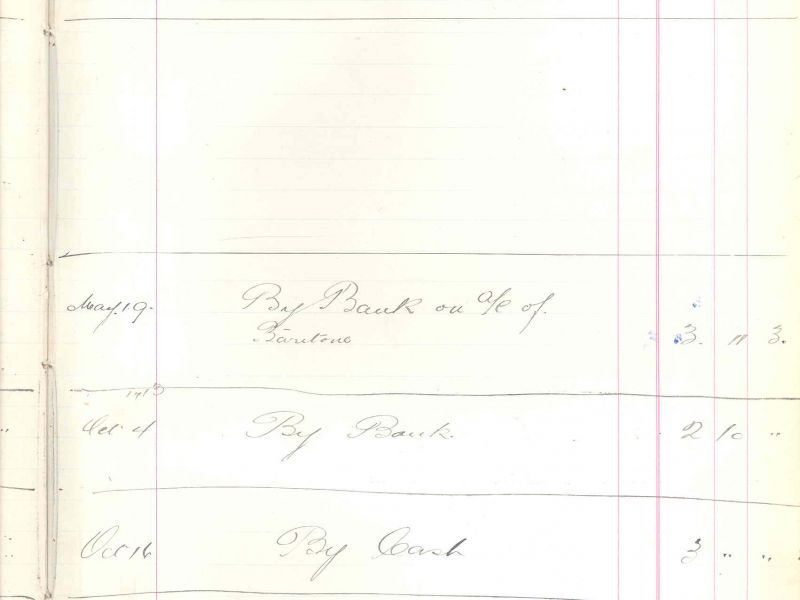 May. 19. By Bank on a/c of.
Baritone 3. " 3.
1913
Oct 4 By Bank. 2 10 "
Oct 16 By Cash 3 " "